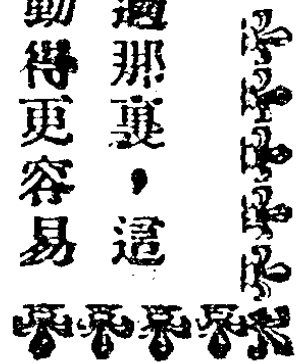 過那裏,這
動得更容易